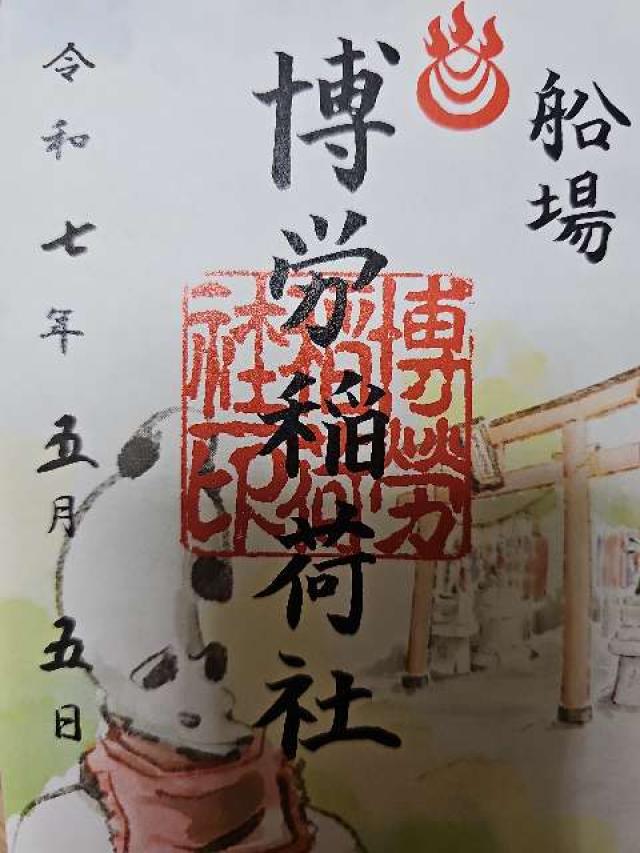 船場
博労稲荷社
博勞
稲荷
社印
令和七年五月五日